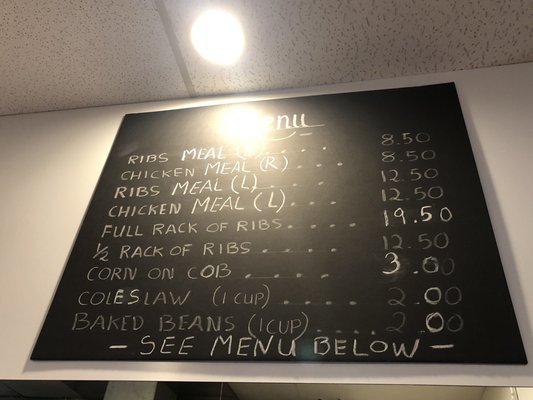 Menu
RIBS MEAL (R) . . . . 8.50
CHICKEN MEAL (R) . . . 8.50
RIBS MEAL (L) . . . . 12.50
CHICKEN MEAL (L) . . . . 12.50
FULL RACK OF RIBS . . . . 19.50
½ RACK OF RIBS . . . . 12.50
CORN ON COB . . . . . 3.00
COLESLAW (1 CUP) . . . . 2.00
BAKED BEANS (1 CUP) . . . . 2.00
- SEE MENU BELOW -